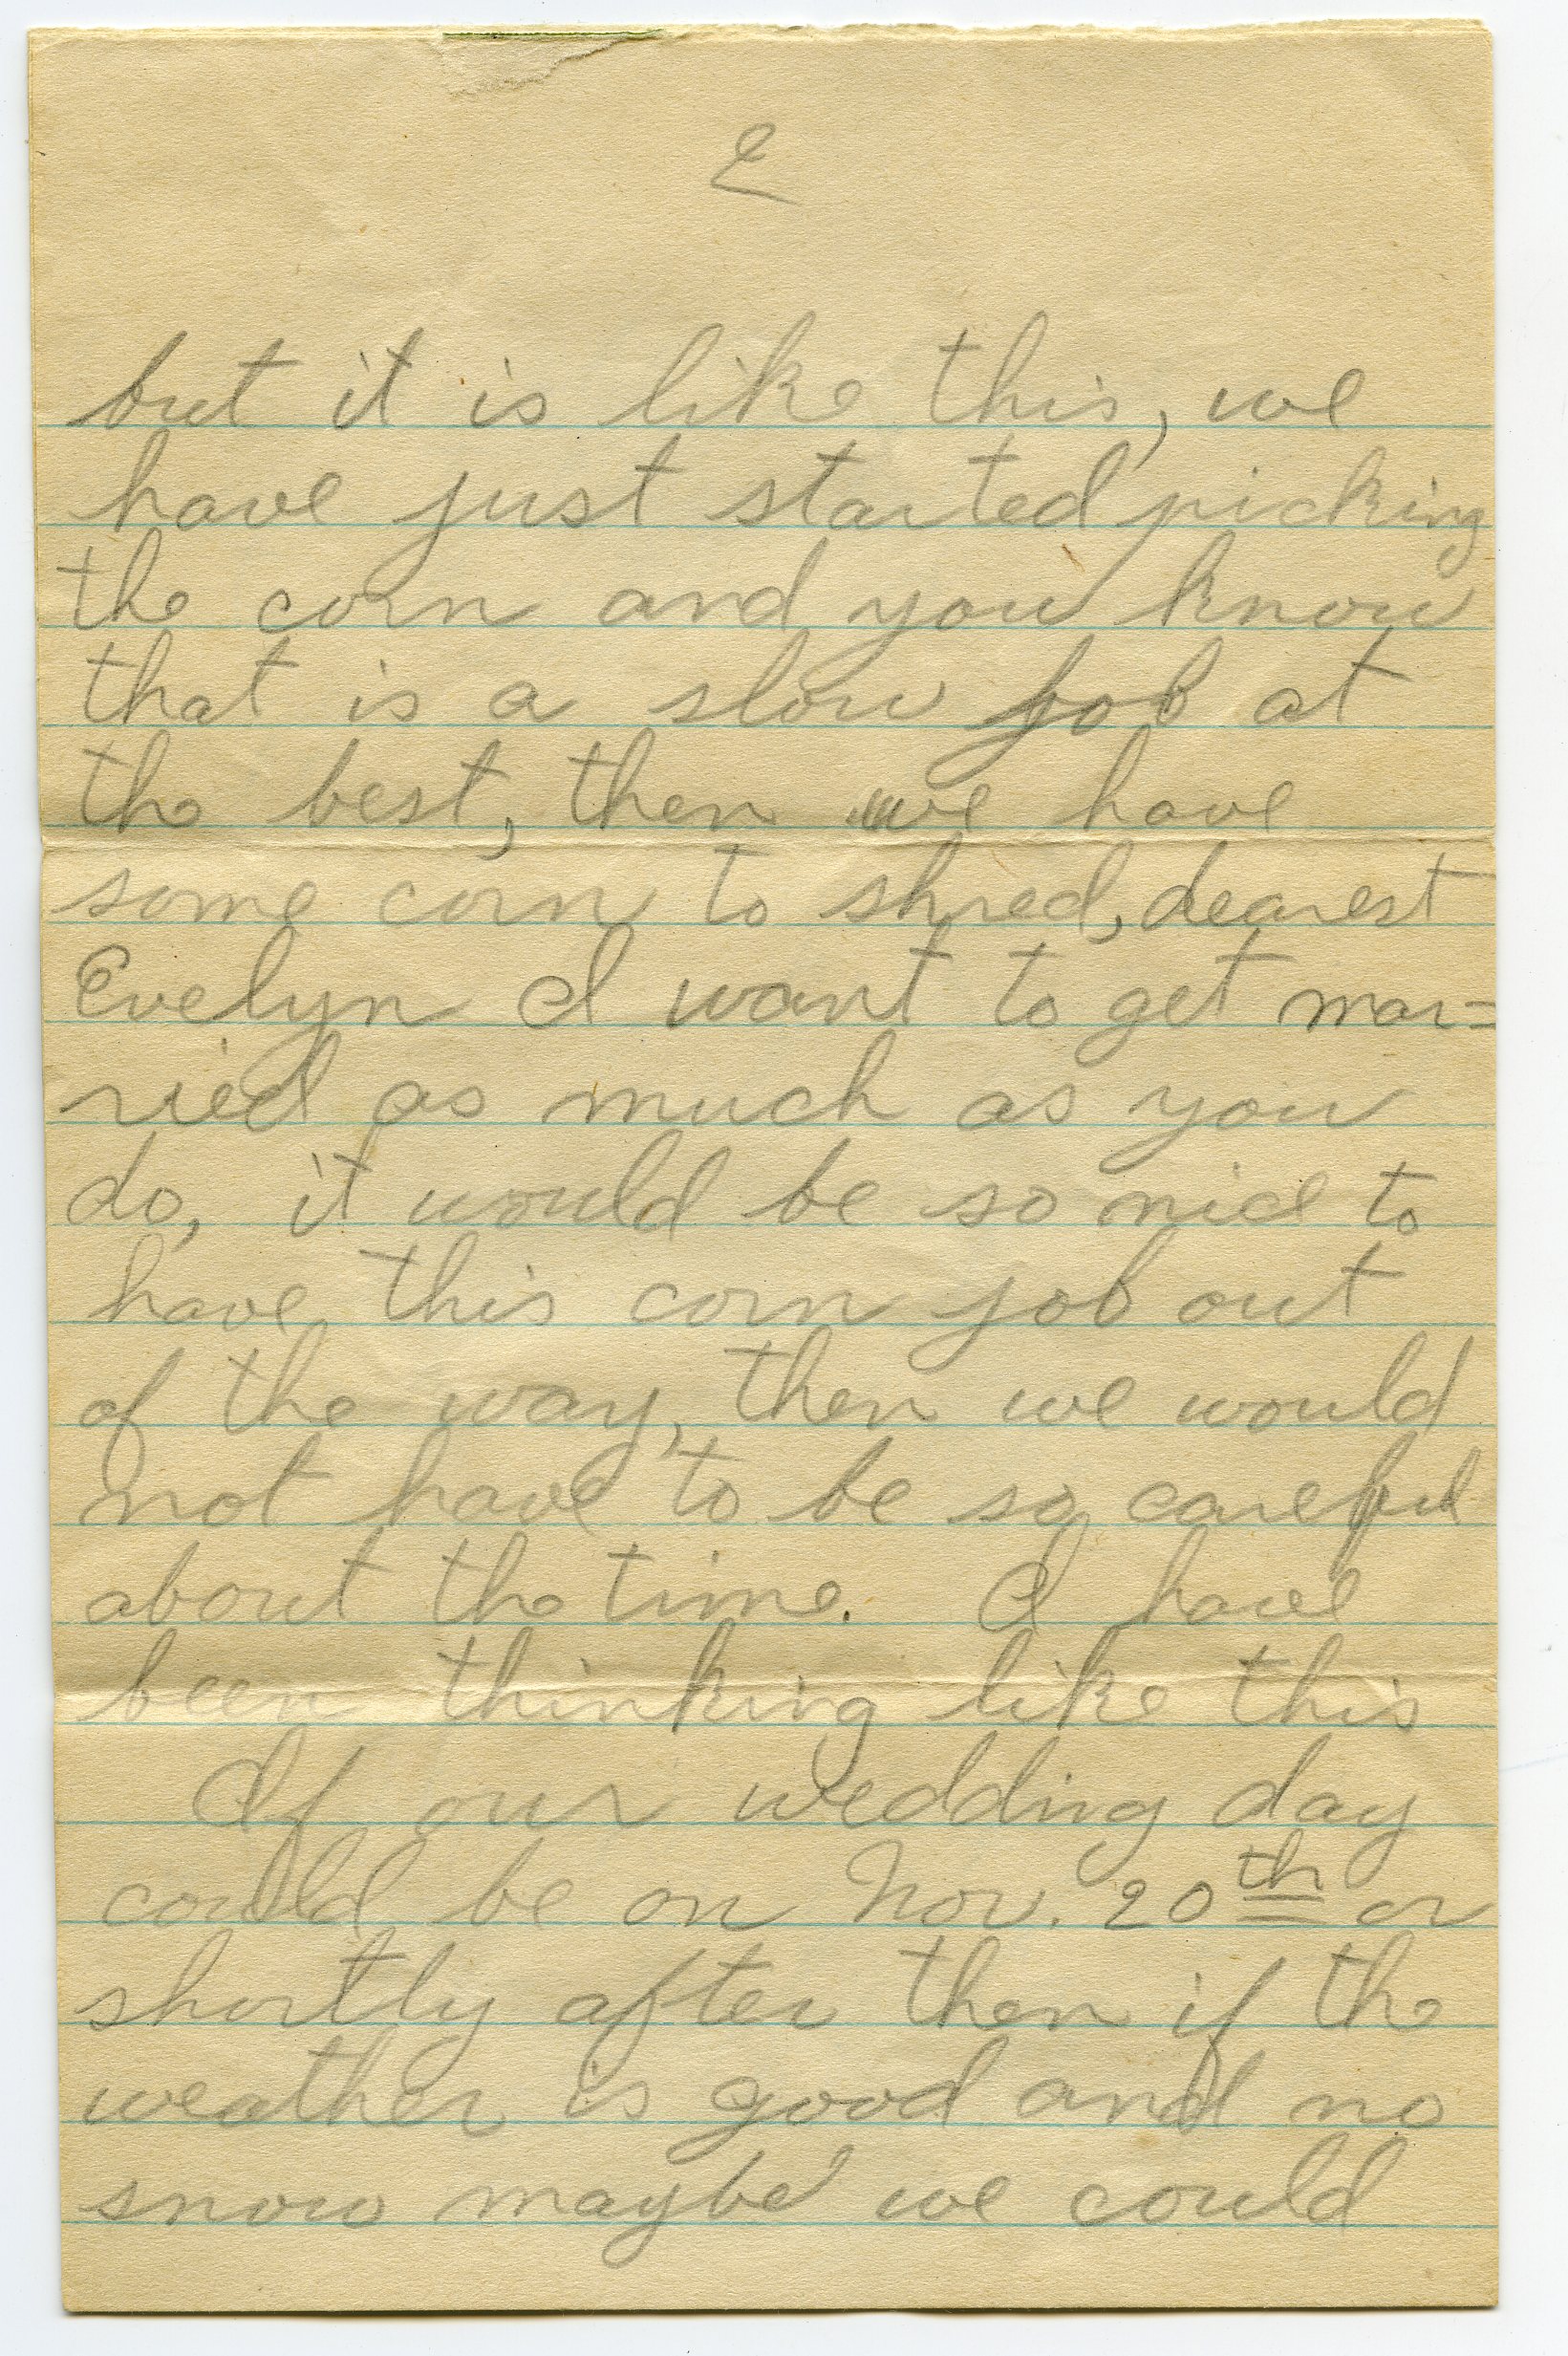 2
but it is like this, we
have just started picking
the corn and you know
that is a slow job at
the best, then we have
some corn to shred, dearest
Evelyn I want to get mar=
ried as much as you
do, it would be so nice to
have this corn job out
of the way, then we would
not have to be so careful
about the time. I have
been thinking like this
If our wedding day
could be on Nov. 20th or
shortly after then if the
weather is good and no
snow maybe we could